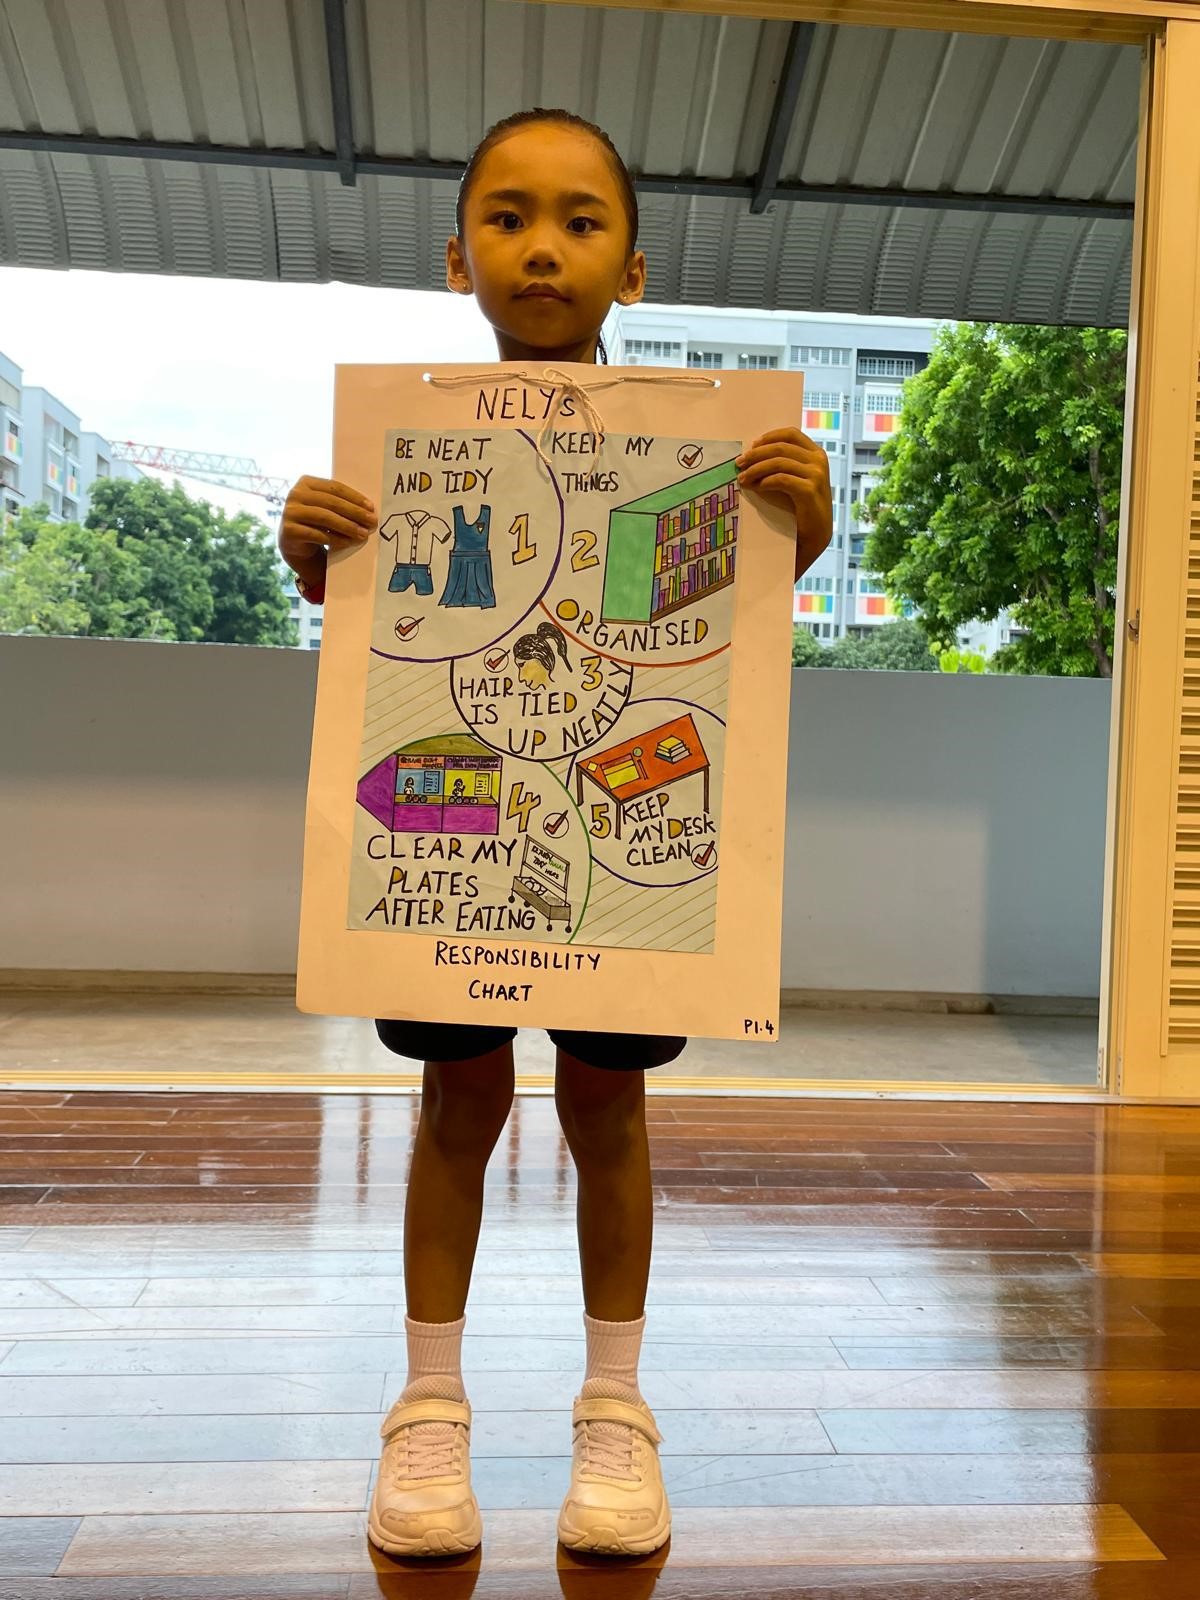 NELYS
BE NEAT
AND TIDY
1
KEEP MY
THINGS
2
ORGANISED
3
HAIR
IS TIED
UP NEATLY
4
CLEAR MY
PLATES
AFTER EATING
5 KEEP
MY DESK
CLEAN
RESPONSIBILITY
CHART
P1.4